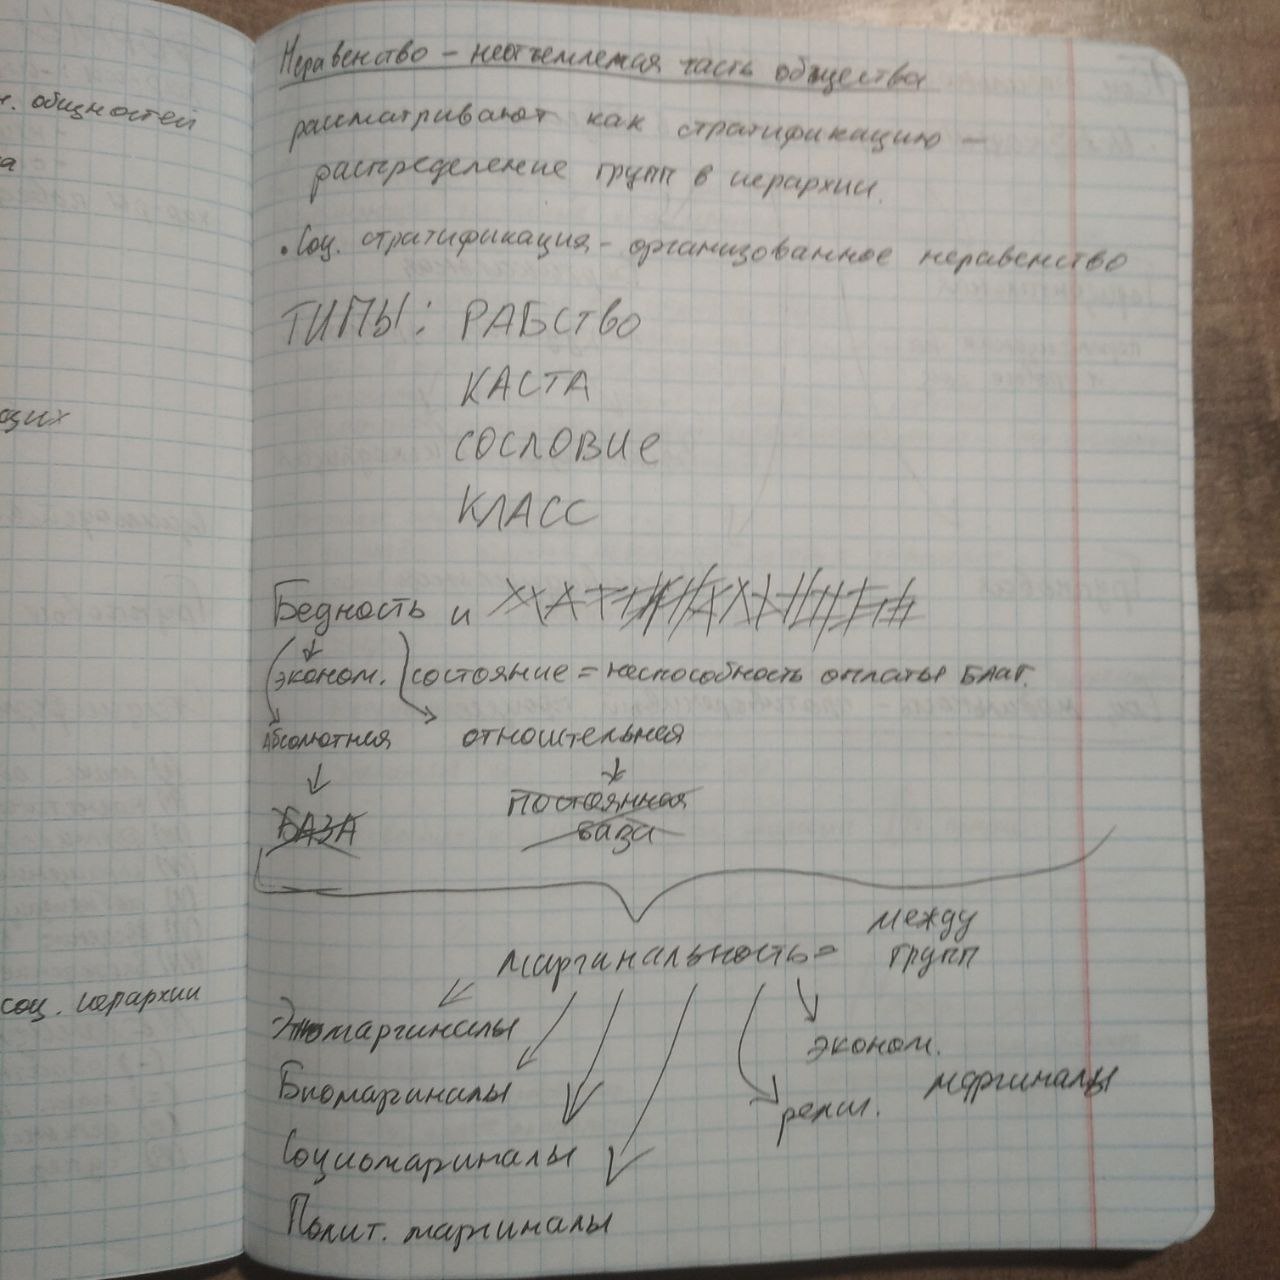 н. общностей
щих
соц. иерархии
Неравенство – неотъемлемая часть общества
рассматривают как стратификацию –
распределение групп в иерархии.
• Соц. стратификация – организованное неравенство
ТИПЫ: РАБСТВО
КАСТА
СОСЛОВИЕ
КЛАСС
Бедность и
эконом. состояние = неспособность оплаты благ.
Абсолютная относительная
БАЗА постоянная
база
маргинальность = между
групп
Этномаргиналы
эконом.
Биомаргиналы
маргиналы
религ.
Социомаргиналы
Полит. маргиналы